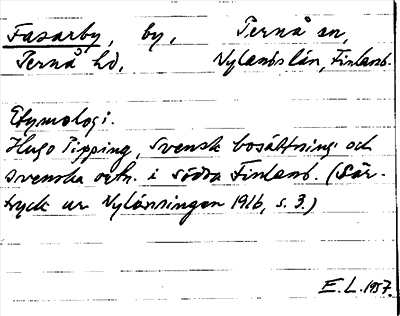 Fasarby, by, Pernå sn,
Pernå hd, Nylands län, Finland.
Etymologi.
Hugo Pipping, Svensk bosättning och
svenska ortn. i södra Finland. (Sär-
tryck ur Nylänningen 1916, s. 3.)
E. L. 1957.